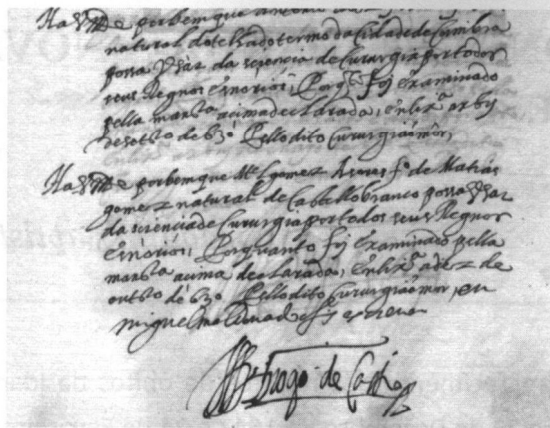 Ha V Mde porbem que Antonio
natural do telhado termo da Cidade de Coimbra
possa Vsar da sciencia de Cururgia por todos
seus Regnos e snorios; Porqto foj examinado
pella manra acima declarada, em lixa
de outbo de 630 Pello dito Cururgiaõ mór,
Ha V Mde por bem que Mel gomez fo de Matias
gomez natural de Castello branco possa Vsar
da sciencia de Cururgia por todos seus Regnos
e snorios; Porquanto foj examinado pella
manra acima declarada, em lixa a dez de
outbo de 630 Pello dito Cururgiaõ mór, eu
miguel maldonado o fiz escreuer